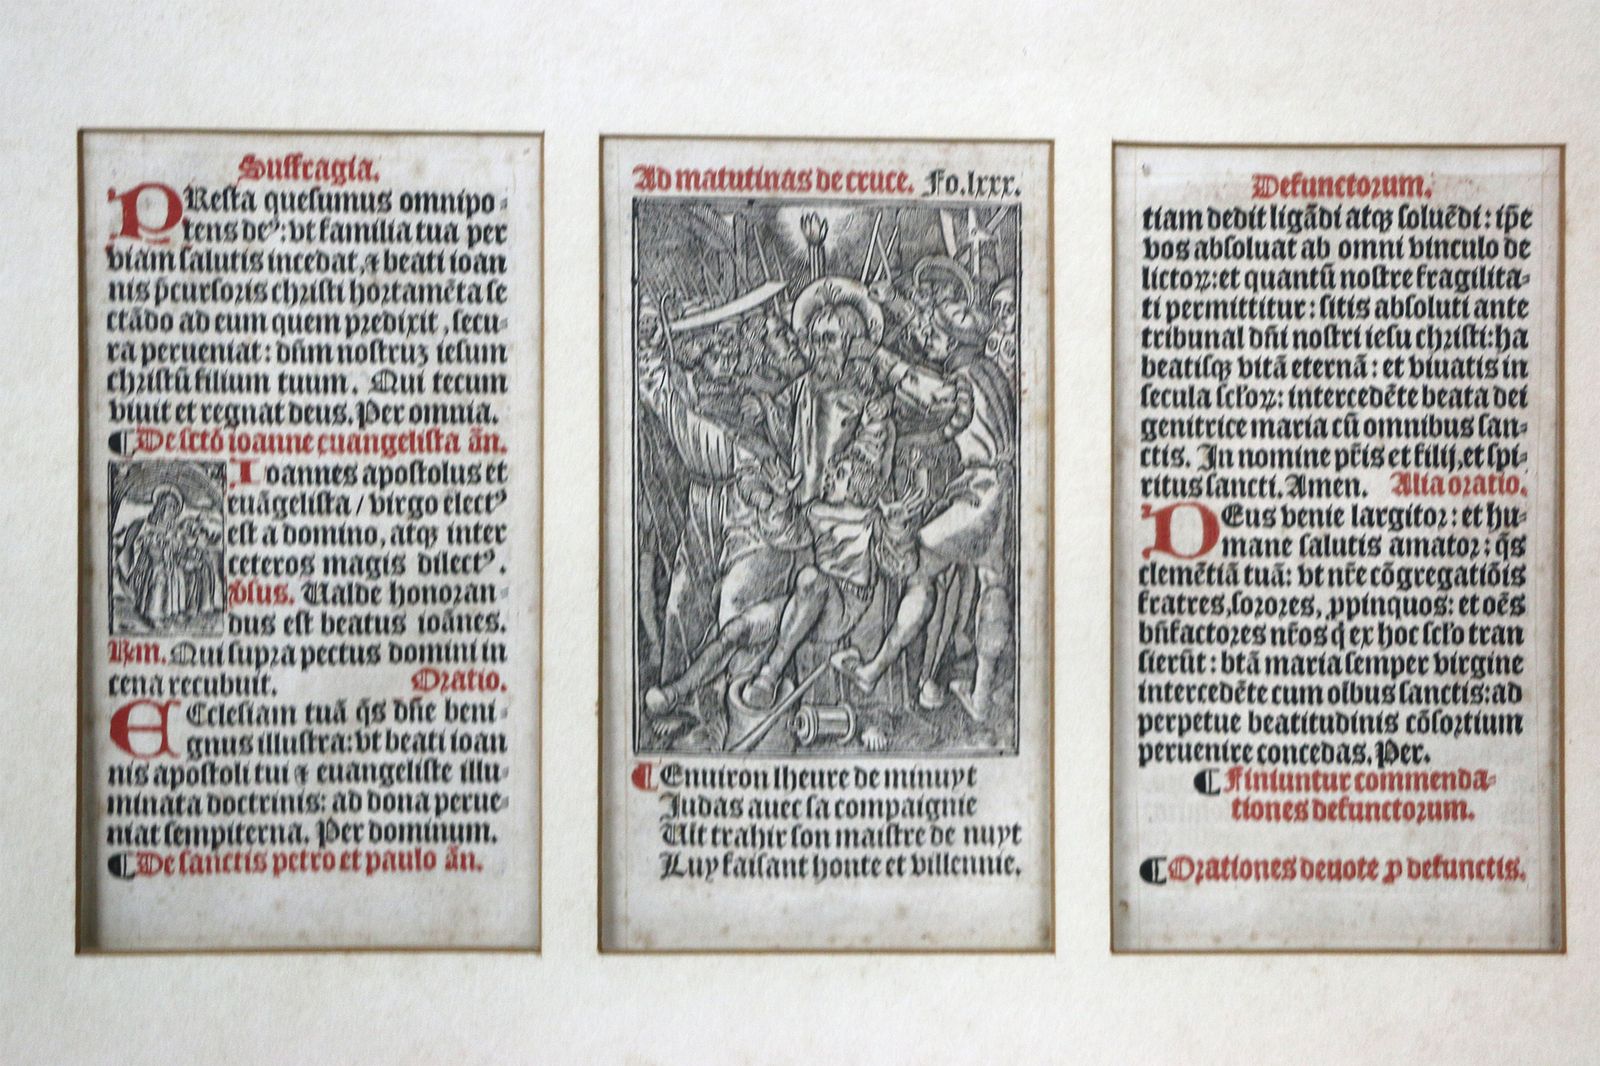 Suffragia.
PResta quesumus omnipo-
tens deꝰ: vt familia tua per
viam salutis incedat, ⁊ beati ioan
nis p̄cursoris christi hortamēta se
ctādo ad eum quem predixit, secu-
ra perueniat: dn̄m nostruꝫ iesum
christū filium tuum. Qui tecum
viuit et regnat deus. Per omnia.
¶ De sctō ioanne euangelista añ.
Ioannes apostolus et
euāgelista / virgo electꝰ
est a domino, atqꝫ inter
ceteros magis dilectꝰ.
v̄sus. Ualde honoran-
dus est beatus ioānes.
Rm̄. Qui supra pectus domini in
cena recubuit. Oratio.
ECclesiam tuā q̄s dn̄e beni-
gnus illustra: vt beati ioan
nis apostoli tui ⁊ euangeliste illu-
minata doctrinis: ad dona perue-
niat sempiterna. Per dominum.
¶ De sanctis petro et paulo añ.
Ad matutinas de cruce. Fo.lxxx.
¶ Enuiron lheure de minuyt
Judas auec sa compaignie
Uit trahir son maistre de nuyt
Luy faisant honte et villennie.
Defunctorum.
tiam dedit ligādi atqꝫ soluēdi: ip̄e
vos absoluat ab omni vinculo de
lictoꝝ: et quantū nostre fragilita-
ti permittitur: sitis absoluti ante
tribunal dn̄i nostri iesu christi: ha
beatisqꝫ vitā eternā: et viuatis in
secula sctoꝝ: intercedēte beata dei
genitrice maria cū omnibus san-
ctis. In nomine pr̄is et filij, et spi-
ritus sancti. Amen. Alia oratio.
DEus venie largitor: et hu-
mane salutis amator: q̄s
clemētiā tuā: vt nr̄e cōgregatiōis
fratres, sorores, ꝓpinquos: et oēs
bn̄factores nr̄os q̄ ex hoc sclo tran
sierūt: btā maria semper virgine
intercedēte cum oībus sanctis: ad
perpetue beatitudinis cōsortium
peruenire concedas. Per.
¶ Finiuntur commenda-
tiones defunctorum.
¶ Orationes deuote ꝓ defunctis.